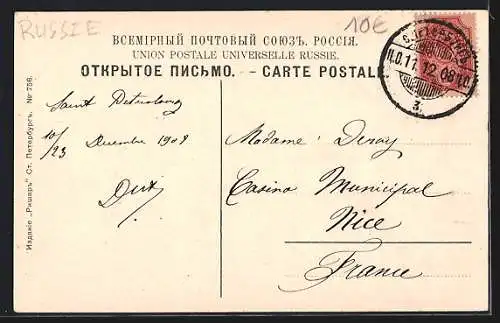 RUSSIE
10€
ВСЕМІРНЫЙ ПОЧТОВЫЙ СОЮЗЪ. РОССІЯ.
UNION POSTALE UNIVERSELLE RUSSIE.
ОТКРЫТОЕ ПИСЬМО. - CARTE POSTALE.
11.12 08
3.
Saint Petersbourg
10/23 Decembre 1908
Madame
Casino Municipal
Nice
France
Изданіе „Ришаръ" Ст. Петербургъ. № 756.